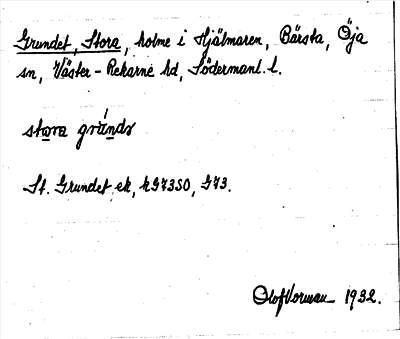 Grundet, Stora, holme i Hjälmaren, Bärsta, Öja
sn, Väster-Rekarne hd, Södermanl. l.
stora gründ
St. Grundet ek, k G73SO, G73.
Olof Vorman 1932.